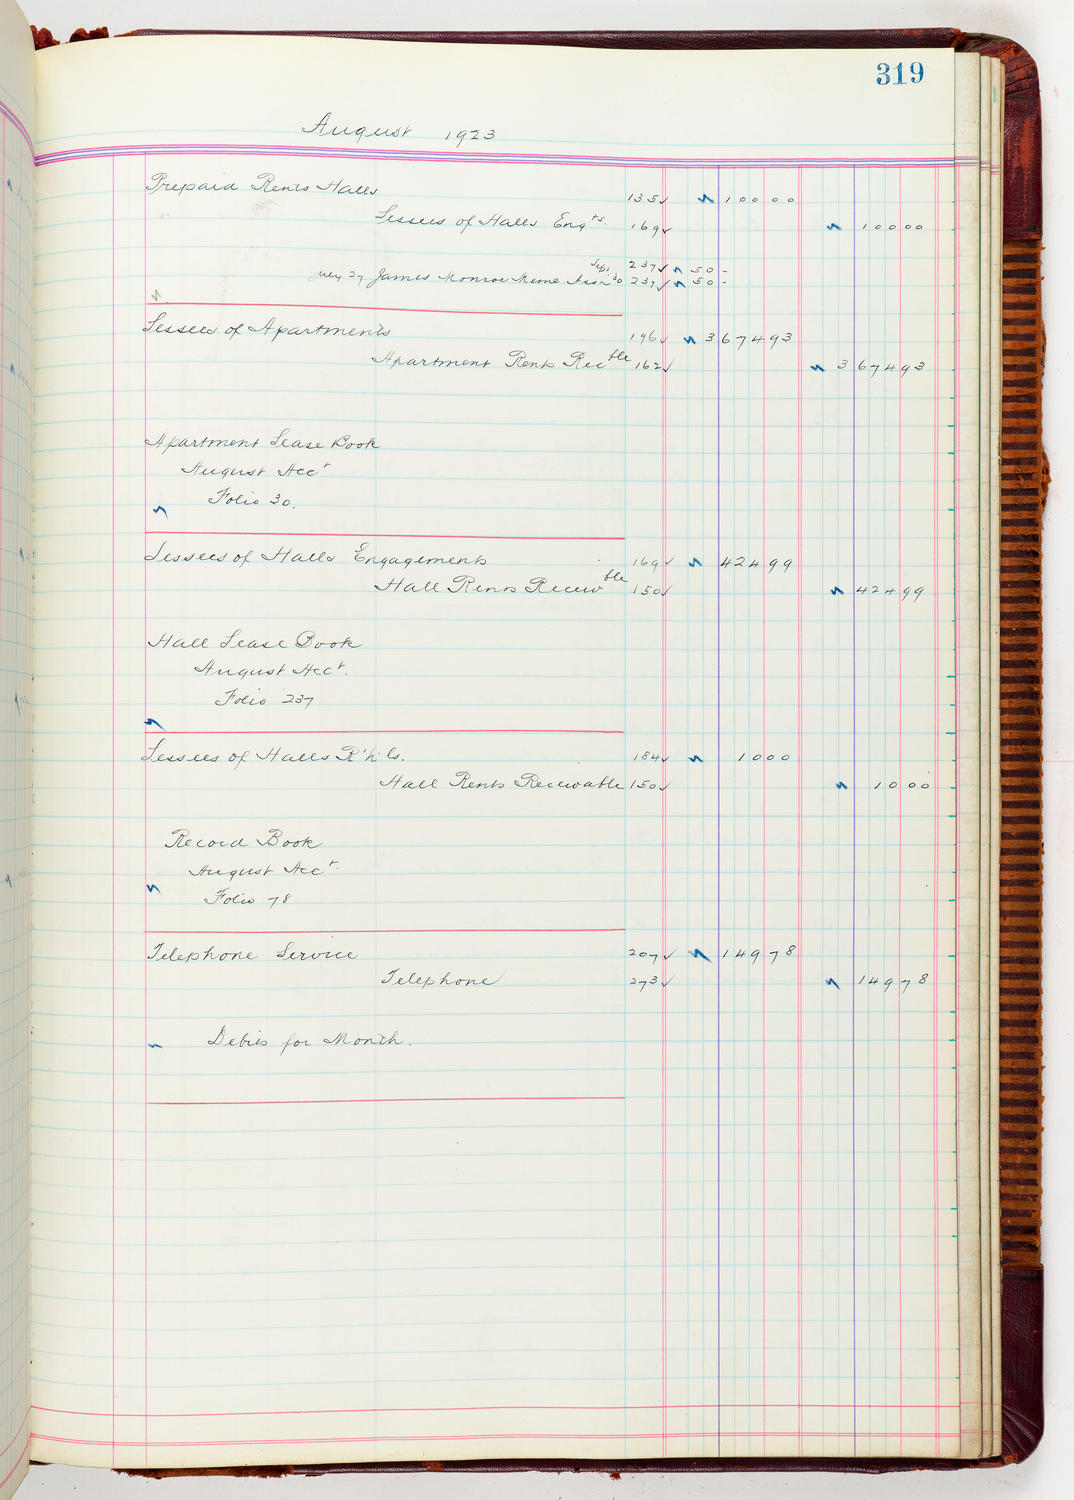 319
August 1923
Prepaid Rents Halls 135✓ 100 00
Lessees of Halls Engts. 169✓ 100 00
Sep. 237✓ 50 -
July 27 James Monroe Meml. Assn 30 237✓ 50 -
Lessees of Apartments 196✓ 3674 93
Apartment Rents Recble 162✓ 3674 93
Apartment Lease Book
August Acct
Folio 30.
Lessees of Halls Engagements 169✓ 424 99
Hall Rents Receivble 150✓ 424 99
Hall Lease Book
August Acct.
Folio 237
Lessees of Halls R'h'ls. 184✓ 10 00
Hall Rents Receivable 150✓ 10 00
Record Book
August Acct.
Folio 78
Telephone Service 207✓ 149 78
Telephone 273✓ 149 78
Debits for Month.